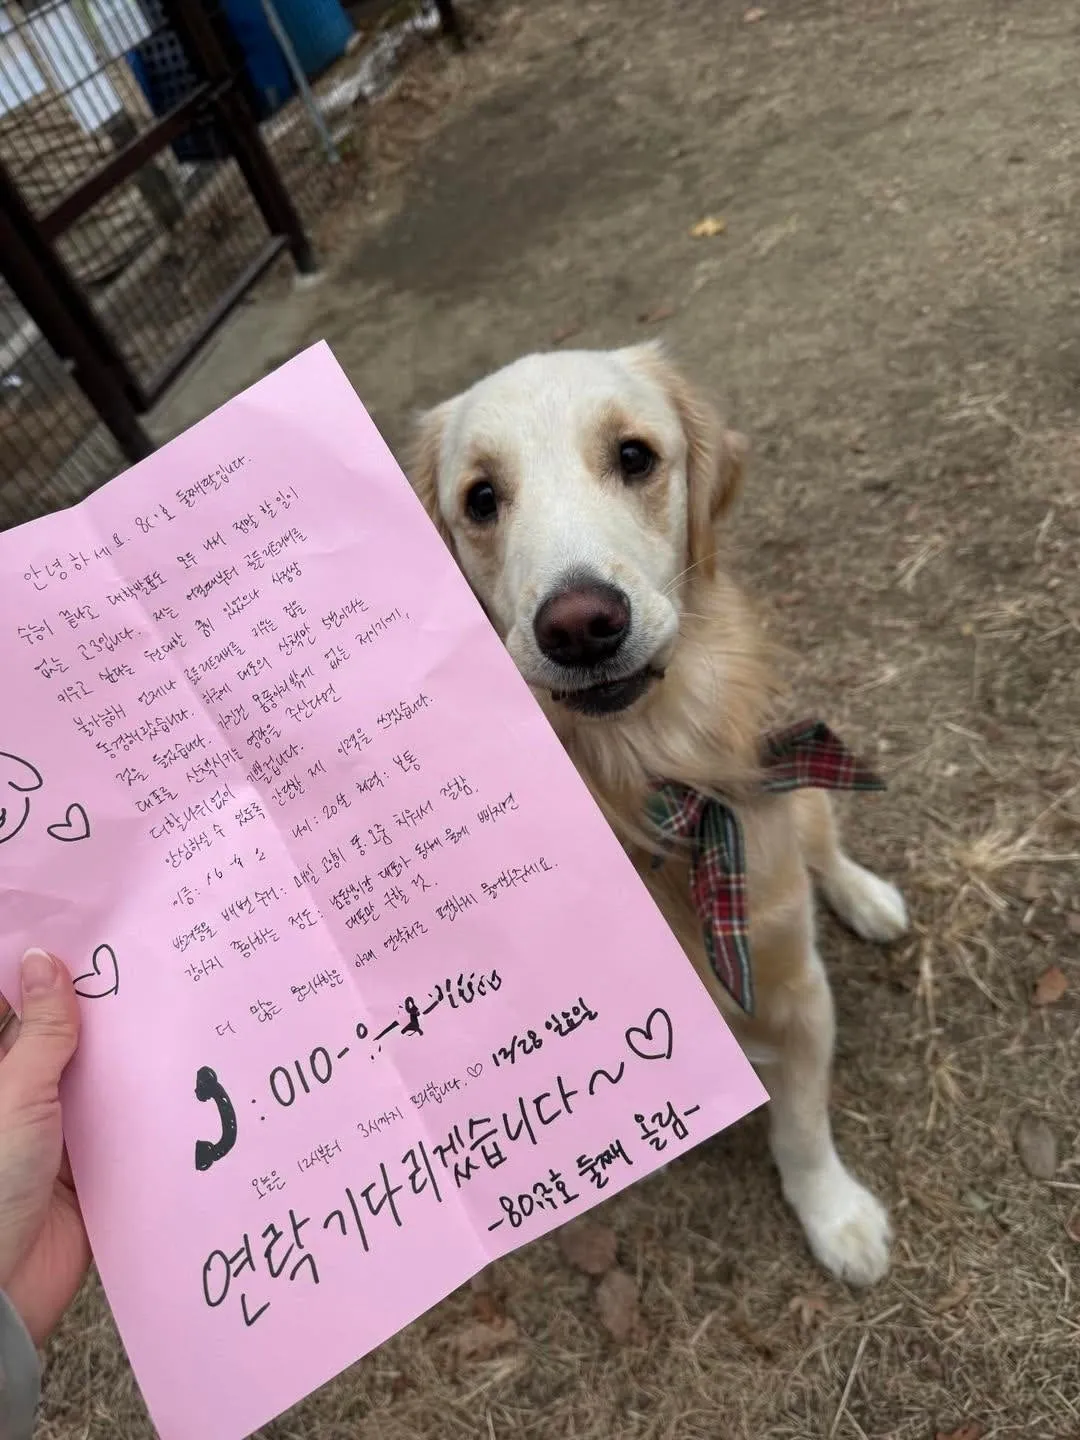 안녕하세요. 80 호 둘째딸입니다.
수능이 끝나고 대학발표도 모두 나서 정말 할 일이
없는 고3입니다. 저는 어렸때부터 골든리트리버를
키우고 싶다는 원대한 꿈이 있었으나 사정상
불가능해 언제나 골든리트리버를 키우는 집을
동경해왔습니다. 하루에 대포의 산책만 5번이라는
것을 들었습니다. 가진건 몸뚱아리밖에 없는 저이기에,
대포를 산책시키는 영광을 주신다면
더할나위없이 기쁠겁니다.
안심하실 수 있도록 간략한 제 이력을 쓰겠습니다.
이름: 나이: 20살 체력: 보통
반려동물 배변 수거: 매일 고양이 똥.오줌 치워서 잘함.
강아지 좋아하는 정도: 남동생이랑 대포가 동시에 물에 빠지면
대포만 구할 것.
더 많은 문의사항은 아래 연락처로 편하게 물어봐주세요.
: 010-
오늘은 12시부터 3시까지 프리합니다.♡ 12/28 일요일
연락 기다리겠습니다~♡
-80 호 둘째 올림-